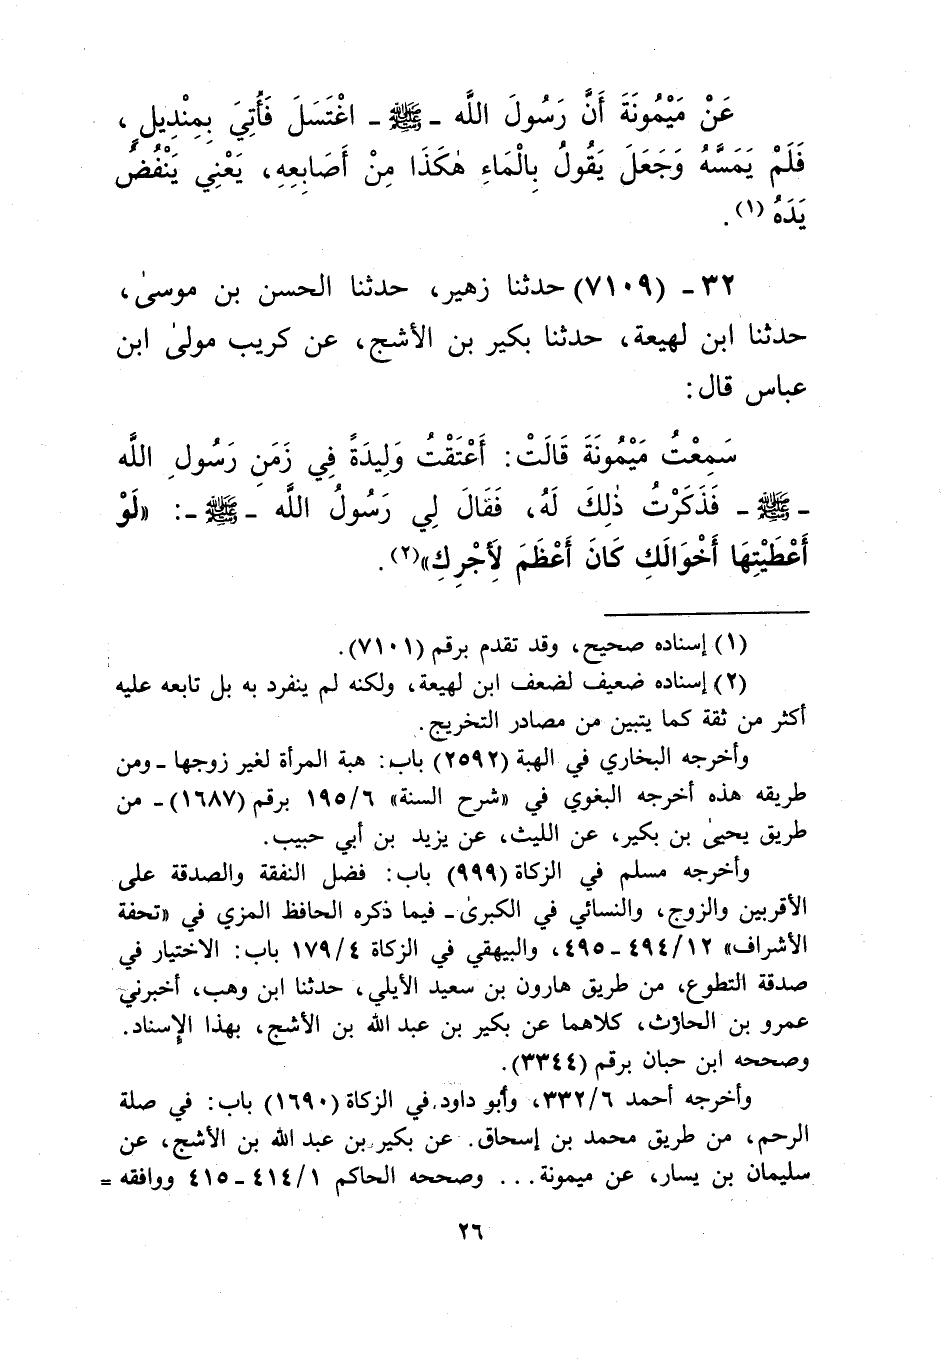 عَنْ مَيْمُونَةَ أَنَّ رَسُولَ اللَّه ـ ﷺ ـ اغْتَسَلَ فَأُتِيَ بِمِنْدِيلٍ ،
فَلَمْ يَمَسَّهُ وَجَعَلَ يَقُولُ بِالْمَاءِ هٰكَذَا مِنْ أَصَابِعِهِ، يَعْنِي يَنْفُضُ
يَدَهُ (١) .
٣٢ ـ (٧١٠٩) حدثنا زهير، حدثنا الحسن بن موسىٰ،
حدثنا ابن لهيعة، حدثنا بكير بن الأشج، عن كريب مولىٰ ابن
عباس قال:
سَمِعْتُ مَيْمُونَةَ قَالَتْ: أَعْتَقْتُ وَلِيدَةً فِي زَمَنِ رَسُولِ اللَّه
ـ ﷺ ـ فَذَكَرْتُ ذٰلِكَ لَهُ، فَقَالَ لِي رَسُولُ اللَّه ـ ﷺ ـ: «لَوْ
أَعْطَيْتِهَا أَخْوَالَكِ كَانَ أَعْظَمَ لِأَجْرِكِ»(٢) .
(١) إسناده صحيح، وقد تقدم برقم (٧١٠١).
(٢) إسناده ضعيف لضعف ابن لهيعة، ولكنه لم ينفرد به بل تابعه عليه
أكثر من ثقة كما يتبين من مصادر التخريج.
وأخرجه البخاري في الهبة (٢٥٩٢) باب: هبة المرأة لغير زوجها ـ ومن
طريقه هذه أخرجه البغوي في «شرح السنة» ١٩٥/٦ برقم (١٦٨٧) ـ من
طريق يحيىٰ بن بكير، عن الليث، عن يزيد بن أبي حبيب.
وأخرجه مسلم في الزكاة (٩٩٩) باب: فضل النفقة والصدقة على
الأقربين والزوج، والنسائي في الكبرىٰ ـ فيما ذكره الحافظ المزي في «تحفة
الأشراف» ٤٩٤/١٢ ـ ٤٩٥، والبيهقي في الزكاة ١٧٩/٤ باب: الاختيار في
صدقة التطوع، من طريق هارون بن سعيد الأيلي، حدثنا ابن وهب، أخبرني
عمرو بن الحارث، كلاهما عن بكير بن عبد الله بن الأشج، بهذا الإسناد.
وصححه ابن حبان برقم (٣٣٤٤).
وأخرجه أحمد ٣٣٢/٦، وأبو داود في الزكاة (١٦٩٠) باب: في صلة
الرحم، من طريق محمد بن إسحاق. عن بكير بن عبد الله بن الأشج، عن
سليمان بن يسار، عن ميمونة... وصححه الحاكم ٤١٤/١ ـ ٤١٥ ووافقه =
٢٦